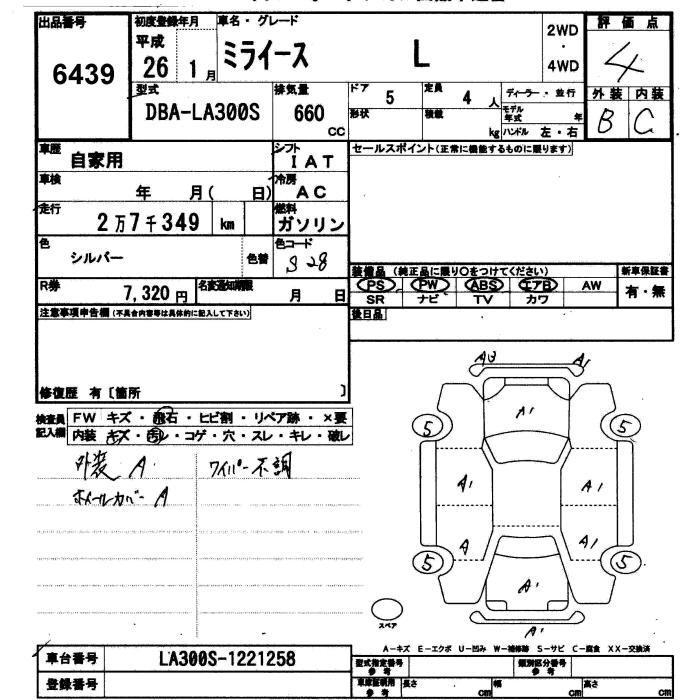 出品番号
6439
初度登録年月
平成
26 1月
車名・グレード
ミライース L
2WD
・
4WD
評価点
4
外装 内装
B C
型式
DBA-LA300S
排気量
660
CC
ドア
5
定員
4 人
ディーラー・並行
形状
積載
kg
モデル年式
年
ハンドル 左・右
車歴
自家用
シフト
IAT
セールスポイント(正常に機能するものに限ります)
車検
年 月( 日)
冷房
AC
走行
2万7千349 km
燃料
ガソリン
色
シルバー
色替
色コード
S28
R券
7,320円
名変通知期限
月 日
装備品 (純正品に限り○をつけてください)
PS PW ABS エアB AW
SR ナビ TV カワ
新車保証書
有・無
注意事項申告欄(不具合内容等は具体的に記入して下さい)
後日品
修復歴 有〔箇所 〕
検査員
記入欄
FW キズ・飛石・ヒビ割・リペア跡・×要
内装 キズ・汚レ・コゲ・穴・スレ・キレ・破レ
外装 A
ワイパー不調
ホイールカバー A
A1
A1
5 5
A1 A1
A A1
5 5
A1
スペア
A1
A-キズ E-エクボ U-凹み W-補修跡 S-サビ C-腐食 XX-交換済
車台番号
LA300S-1221258
登録番号
型式指定番号
参考
類別区分番号
参考
車庫証明用
参考
長さ
cm
幅
cm
高さ
cm